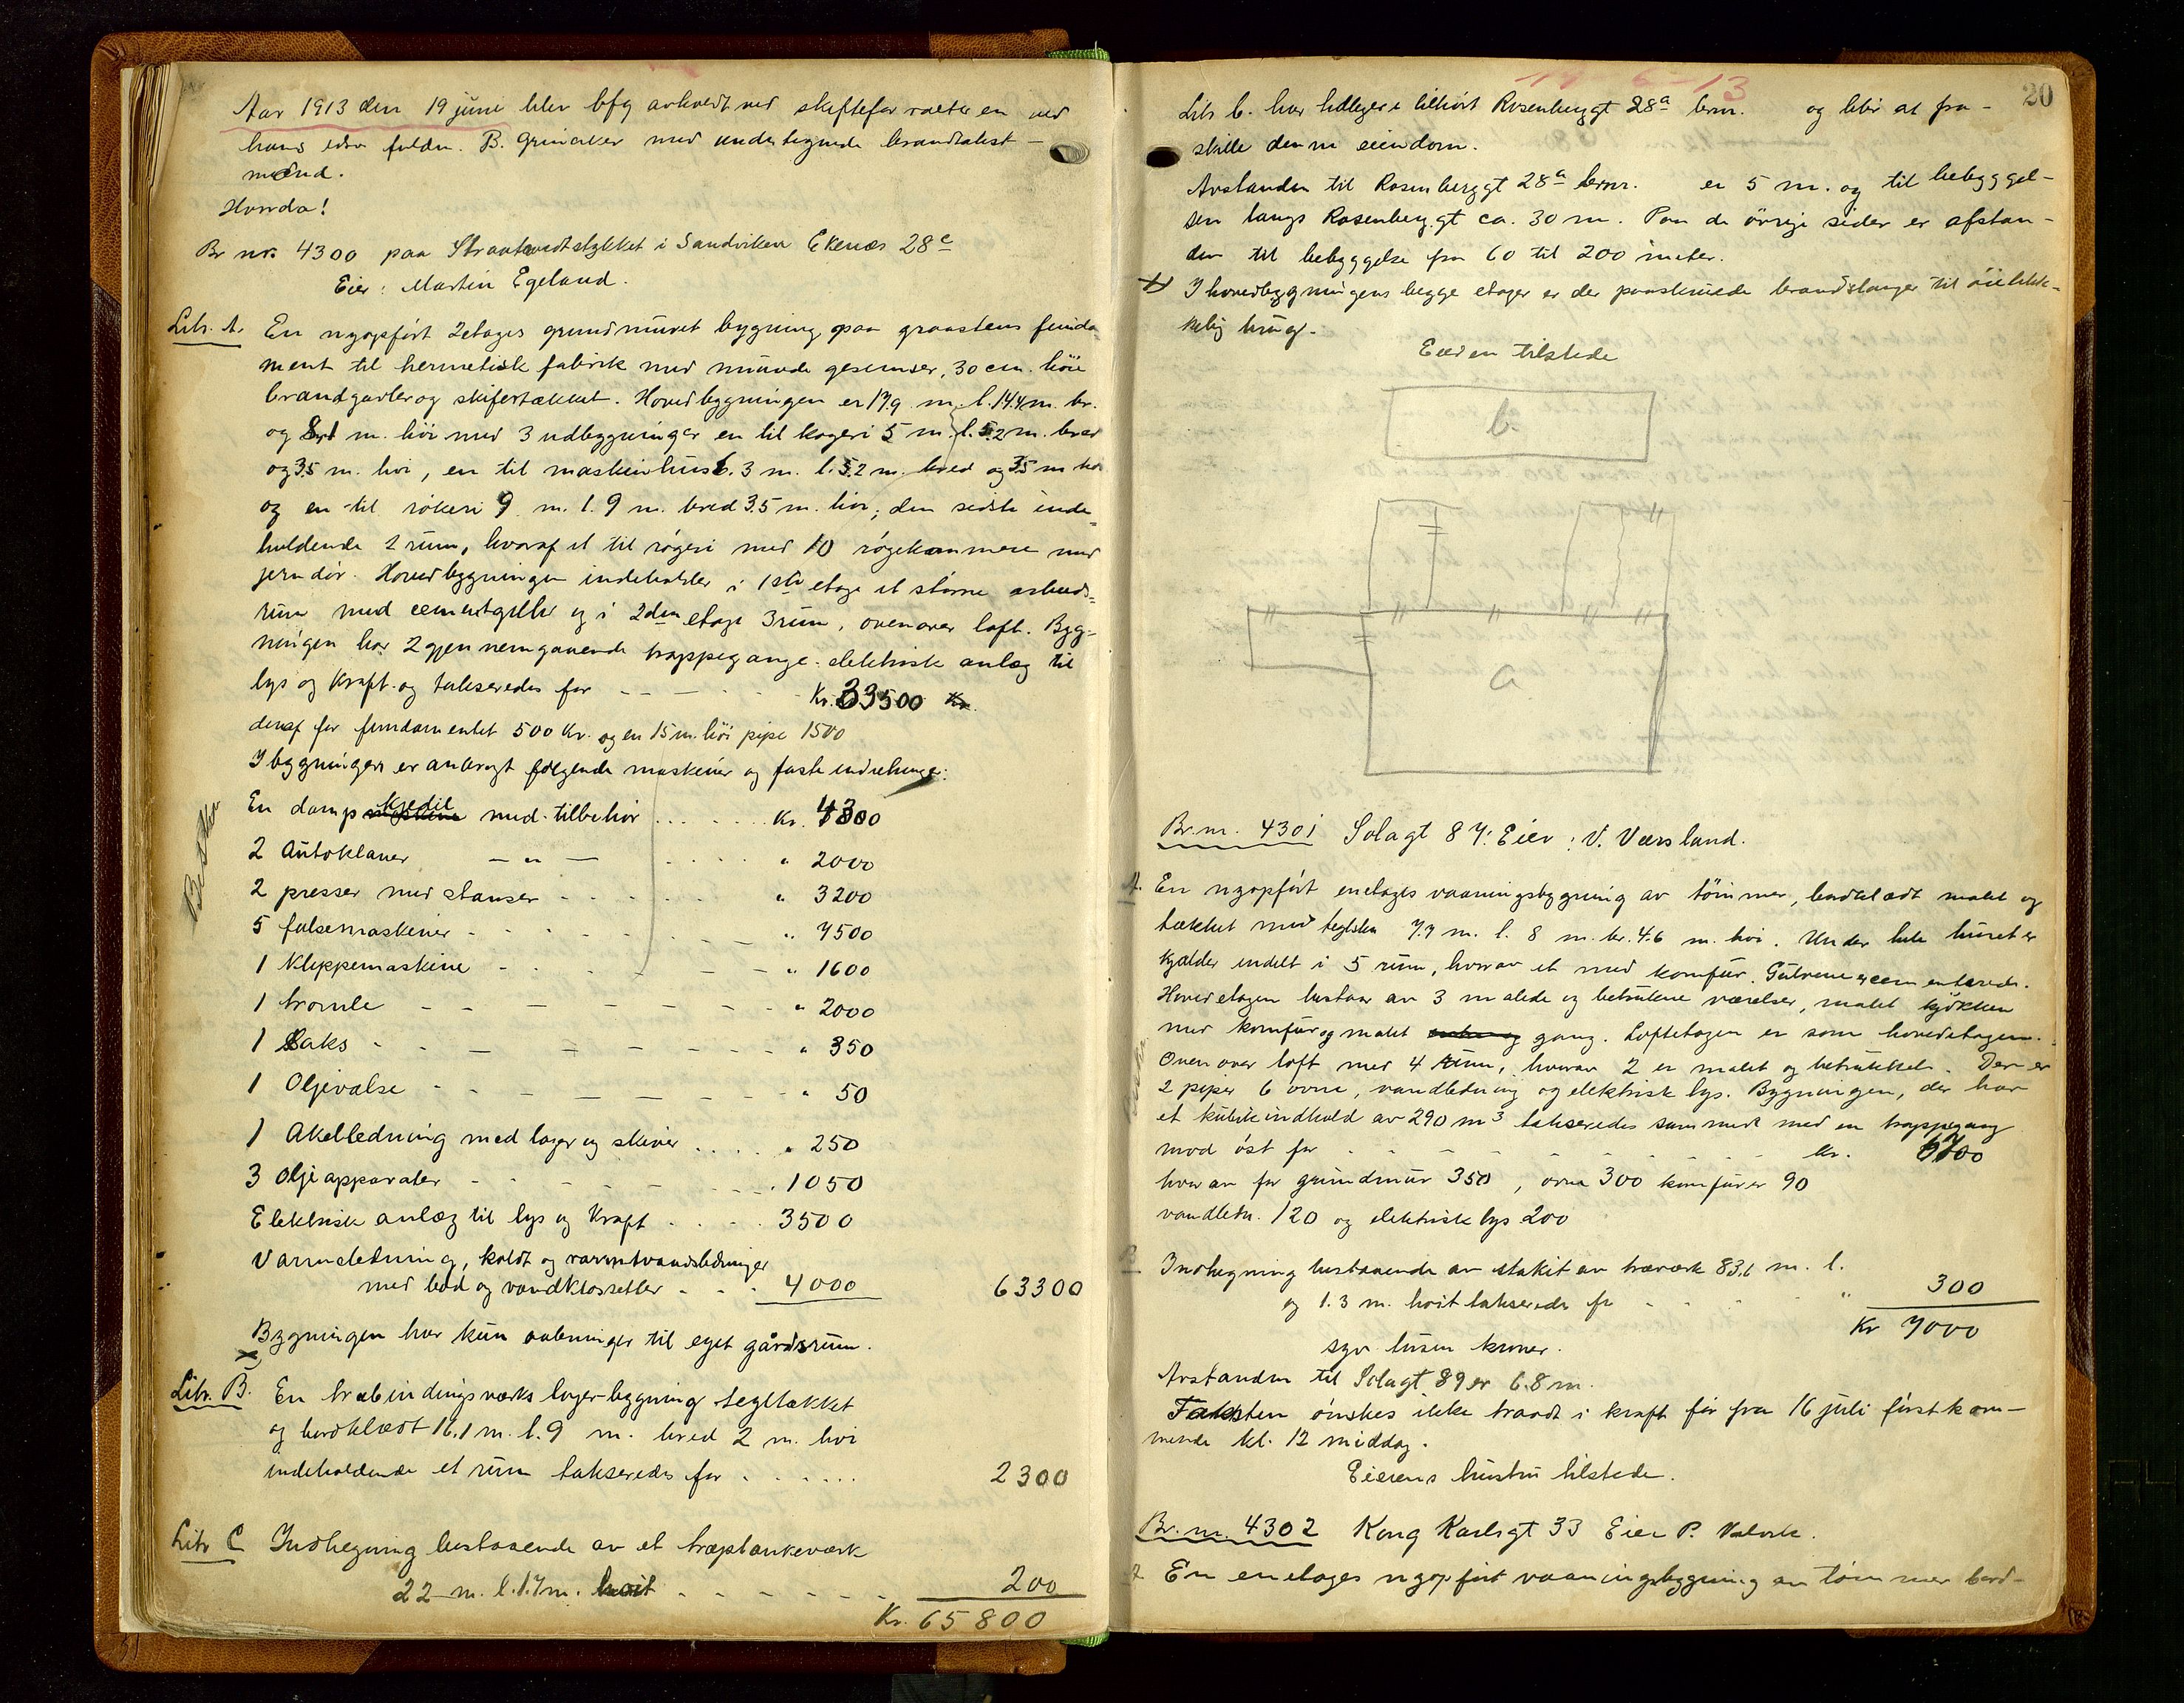 Aar 1913 den 19 juni blev bfg avholdt ved skifteforvalteren ved
hans edsv fuldm. B. Grincker med undertegnede brandtakst-
mænd.
Hvorda!
Br nr. 4300 paa Straatvedtstykket i Sandviken Ekenæs 28c
Eier: Martin Egeland.
Litr. A. En nyopført 2etages grundmuret bygning paa graastens funda-
ment til hermetisk fabrik med murede gesimser, 30 cm. höie
brandgavler og skifertækket. Hovedbygningen er 17.9 m. l. 14.4 m. br.
og 8.1 m. höi med 3 udbygninger en til kogeri 5 m. l. 5.2 m. bred
og 3.5 m. höi, en til maskinhus 6.3 m. l. 5.2 m. bred og 3.5 m höi
og en til rökeri 9 m. l. 9 m. bred 3.5 m. höi; den sidste inde-
holdende 2 rum, hvoraf et til røgeri med 10 røgekammere med
jerndör. Hovedbygningen indeholder i 1ste etage et større arbeids-
rum med cementgulv og i 2den etage 3 rum, ovenover loft. Byg-
ningen har 2 gjennemgaaende trappegange. elektrisk anlæg til
lys og kraft og takseredes for — — — Kr. 33500 Kr.
deraf for fundamentet 500 Kr. og en 15 m. höi pipe 1500
I bygningen er anbragt følgende maskiner og faste indretninger:
En damp maskine kjedel med tilbehör . . . . . Kr. 4300
2 Autoklaver — „ — . . . . „ 2000
2 presser med stanser - - - . . . . „ 3200
5 falsemaskiner - - - - - - „ 7500
1 Klippemaskine - - - - - - „ 1600
1 tromle - - - - - - - „ 2000
1 Saks - - - - - - - „ 350
1 Oljevalse - - - - - - - „ 50
1 Akelledning med lager og skiver . . . . „ 250
3 Oljeapparater - - - - - - 1050
Elektrisk anlæg til lys og Kraft . . . . 3500
Varmeledning, koldt og varmtvandsledninger
med bad og vandklossetter - . . . 4000 63300
Bygningen har kun aabninger til eget gårdsrum.
x
Litr. B. En træbindingsværks lagerbygning tegltækket
og bordklædt 16.1 m. l. 9 m. bred 2 m. höi
indeholdende et rum takseredes for . . . . . . 2300
Litr C Indhegning bestaaende av et træplankeværk
22 m. l. 1.7 m. höit - - - - - - - 200
Kr. 65800
20
19 - 6 - 13
Litr b. har tidligere tilhört Rosenberggt 28a brnr. og blir at fra-
skille denne eiendom.
Avstanden til Rosenberggt 28a brnr. er 5 m. og til bebyggel-
sen langs Rosenberggt ca. 30 m. Paa de övrige sider er afstan-
den til bebyggelse fra 60 til 200 meter.
x I hovedbygningens begge etager er der paaskruede brandslanger til öieblik-
kelig brug.
Eieren tilstede
b.
a
Br. nr. 4301 Solagt 87. Eier: V. Værsland.
A. En nyopfört enetages vaaningsbygning av tömmer, bordklædt malet og
tækket med teglsten 7.7 m. l. 8 m. br. 4.6 m. höi. Under hele huset er
kjælder indelt i 5 rum, hvorav et med komfur. Gulvene er cementerede.
Hovedetagen bestaar av 3 malede og betrukne værelser, malet kjökken
med komfur og malet gang. Loftetagen er som hovedetagen.
Ovenover loft med 4 rum, hvorav 2 er malet og betrukket. Der er
2 piper 6 ovne, vandledning og elektrisk lys. Bygningen, der har
et kubikindhold av 290 m3 takseredes sammen med en trappegang
mod öst for - - - - - - - - kr. 6700
hvorav for grundmur 350, ovne 300 komfurer 90
vandledn. 120 og elektrisk lys 200
B Indhegning bestaaende av stakit av træværk 83,6 m. l.
og 1.3 m. höit takseredes for - - - - „ 300
Kr 7000
syv tusen kroner.
Avstanden til Solagt 89 er 6.8 m.
Taksten önskes ikke traadt i kraft för fra 16 juli förstkom-
mende kl. 12 middag.
Eierens hustru tilstede.
Br. nr. 4302 Kong Karlsgt 33 Eier P.
A En enetages nyopfört vaaningsbygning av tömmer bord-